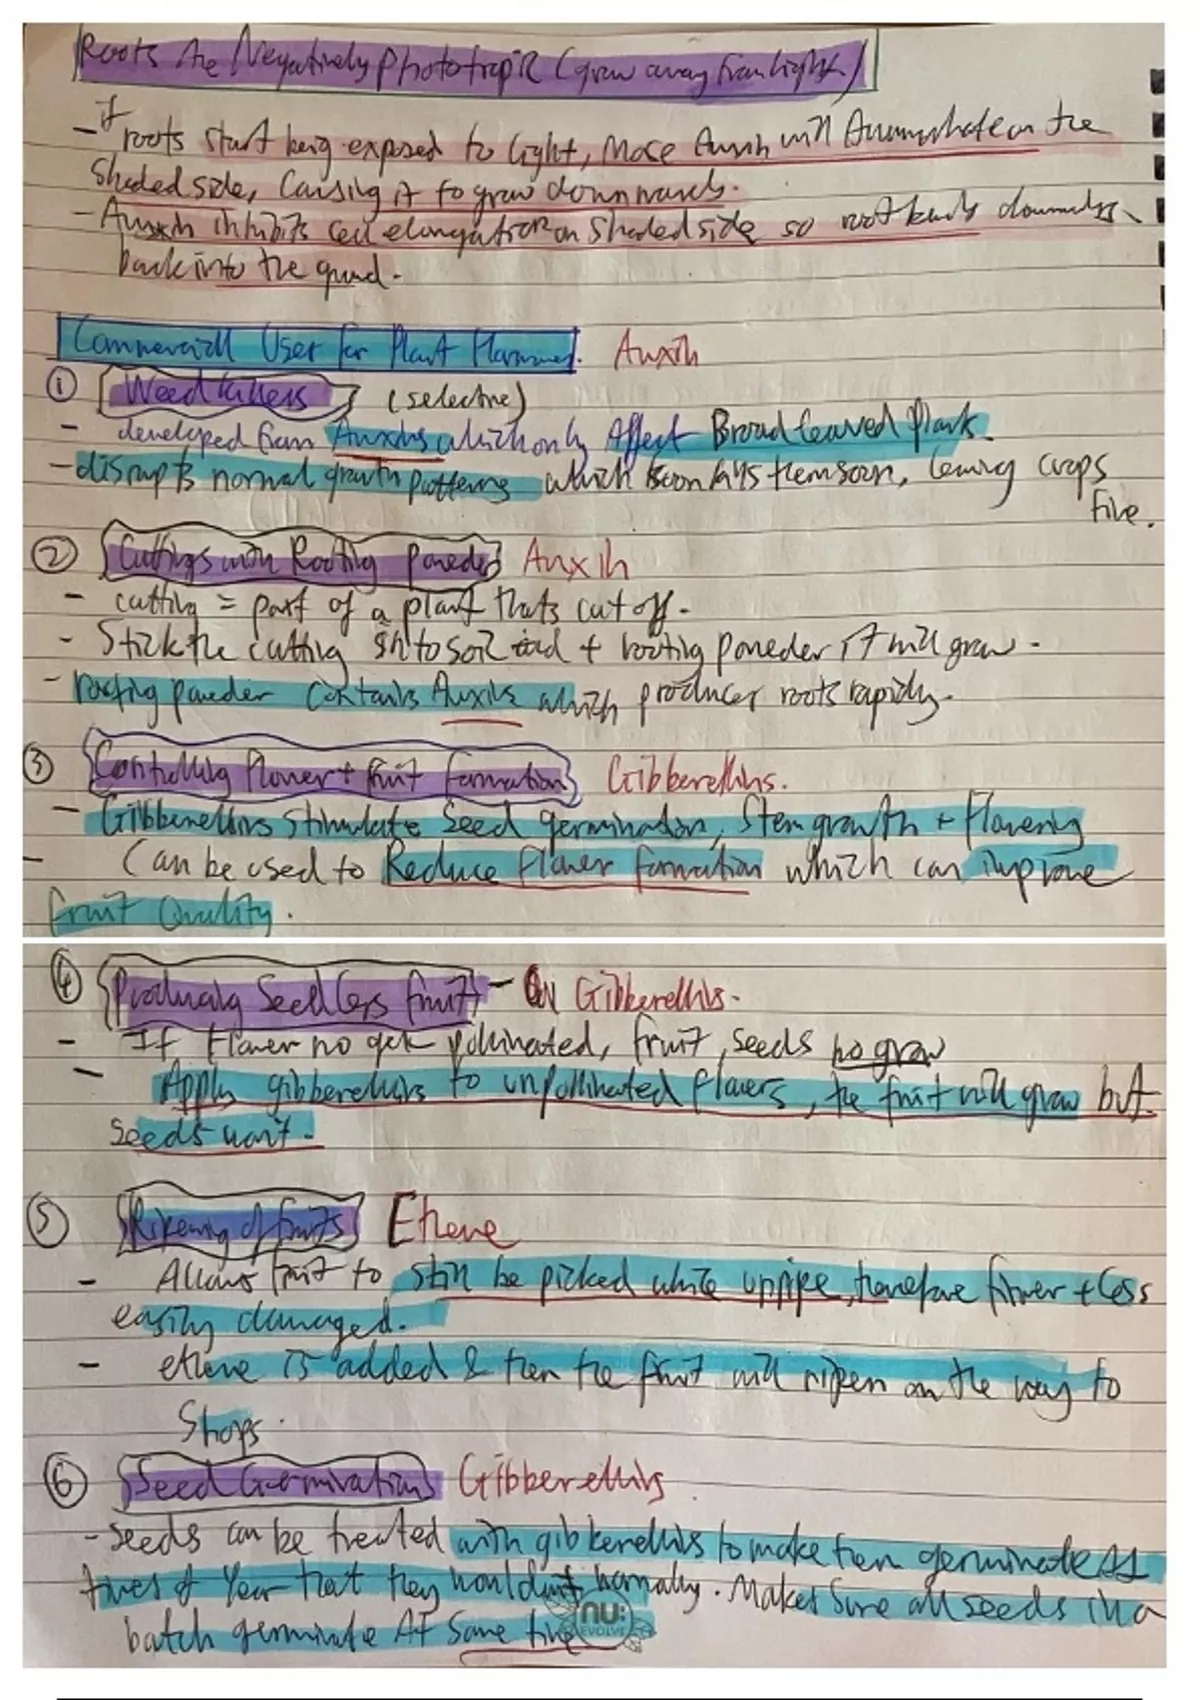 Roots Are Negatively Phototropic (grow away from light)
- if roots start being exposed to light, More Auxin will Accumulate on the
Shaded side, Causing it to grow downwards.
- Auxin inhibits cell elongation on Shaded side so root bends downwards
back into the
Commercial Uses for Plant Hormones. Auxin
① Weed killers (selective)
- developed from Auxins which only Affect Broad leaved Plants.
- disrupts normal growth patterns which soon them soon, leaving crops
fine.
② Cuttings with Rooting powder Auxin
- cutting = part of a plant thats cut off.
- Stick the cutting into soil + rooting powder it will grow.
- rooting powder contains Auxins which produces roots rapidly.
③ Controlling Flower + fruit formation Gibberellins.
- Gibberellins stimulate seed germination, Stem growth + flowering
- Can be used to Reduce flower formation which can improve
fruit Quality.
④ Producing Seedless fruit - Gibberellins.
- If flower no get pollinated, fruit, seeds no grow
- Apply gibberellins to unpollinated flowers, the fruit will grow but
seeds wont.
⑤ Ripening of fruits Ethene
- Allows fruit to still be picked while unripe, therefore firmer + less
easily damaged.
- ethene is added & then the fruit will ripen on the way to
Shops.
⑥ Seed Germination Gibberellins
- seeds can be treated with gibberellins to make them germinate At
times of Year that they wouldn't normally. Makes Sure all seeds in a
batch germinate At Same time
nu:
EVOLVE